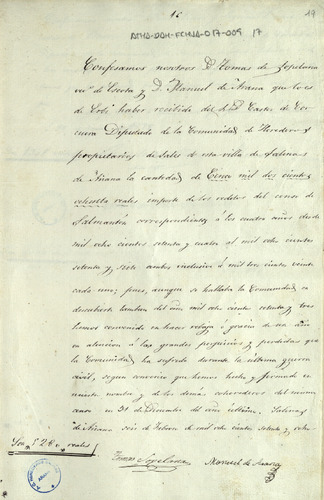 16
19
ATHA-DAH-FCHUA-017-009 17
Confesamos nosotros D. Tomas de Sopelana
vecº de Escota y D. Manuel de Arana que lo es
de haber recibido del Castor de
Diputado de la Comunidad de Herederos
propietarios de Sales de esta villa de Salinas
de Añana la cantidad de Cinco mil dos cientos
ochenta reales importe de los reditos del censo de
Salmantón correspondientes a los cuatro años desde
mil ocho cientos setenta y cuatro al mil ocho cientos
setenta y siete ambos inclusive á mil tres cientos veinte
cada uno; pues, aunque se hallaba la Comunidad en
descubierto tambien del año mil ocho cientos setenta y tres
hemos convenido en hacer rebaja ó gracia de un año
en atención á los grandes perjuicios y perdidas que
la Comunidad ha sufrido durante la última guerra
civil, segun convenio que hemos hecho y firmado en
nuestro nombre y de los demás coherederos del mismo
censo en 31 de Diciembre del año último. Salinas
de Añana seis de Febrero de mil ocho cientos setenta y ocho
Son 5280 reales
Tomas Sopelana
Manuel de Arana